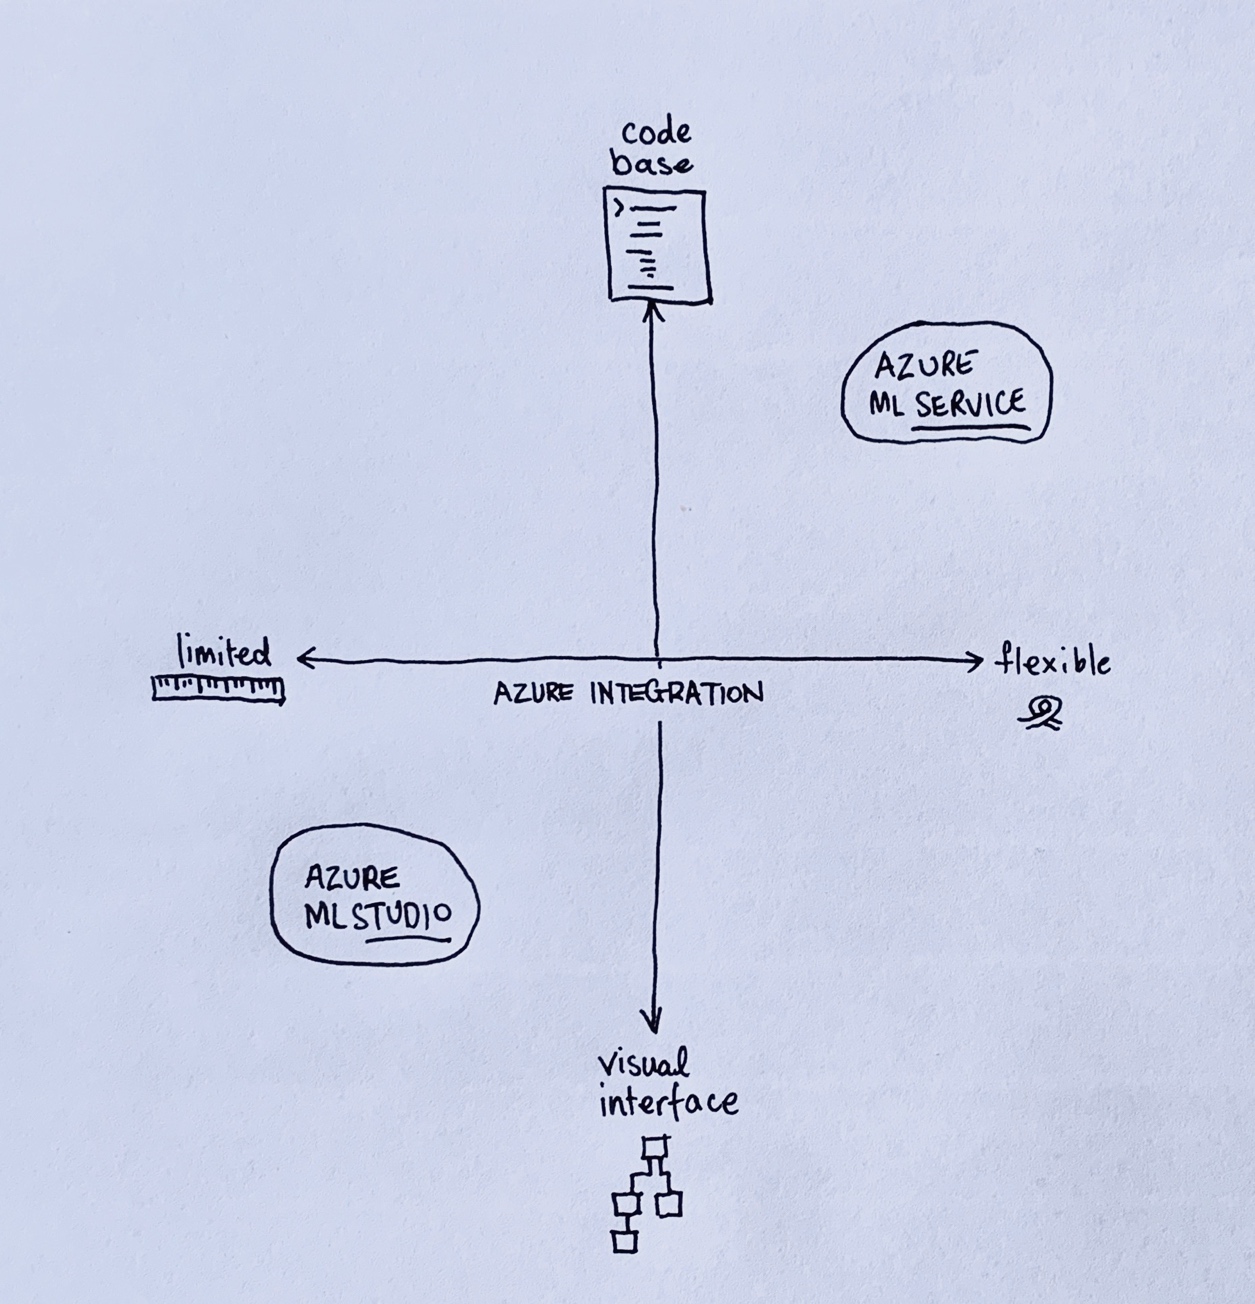 code
base
AZURE
ML SERVICE
limited
flexible
AZURE INTEGRATION
AZURE
ML STUDIO
visual
interface